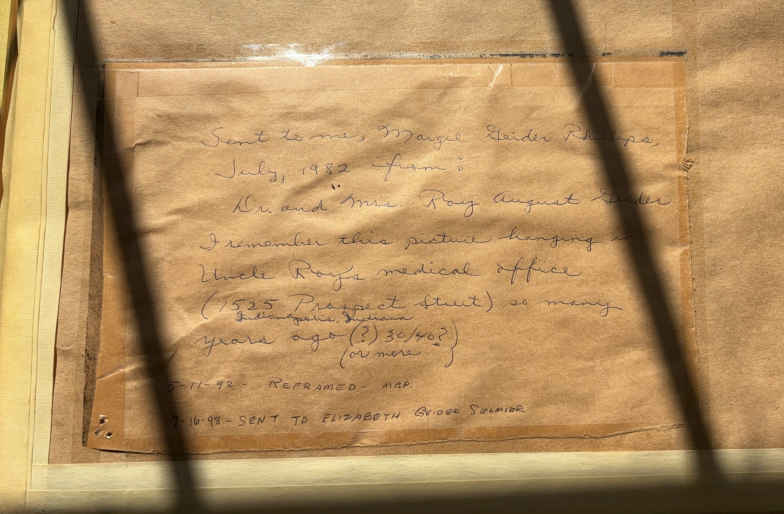 Sent to me, Margie Geider Phillips,
July, 1982 from:
Dr. and Mrs. Roy August Geider
I remember this picture hanging in
Uncle Roy's medical office
(1525 Prospect Street) so many
Indianapolis, Indiana
years ago (?) 30/40?
(or more)
5-11-92 - REFRAMED - MGP.
7-16-98 - SENT TO ELIZABETH GEIDER